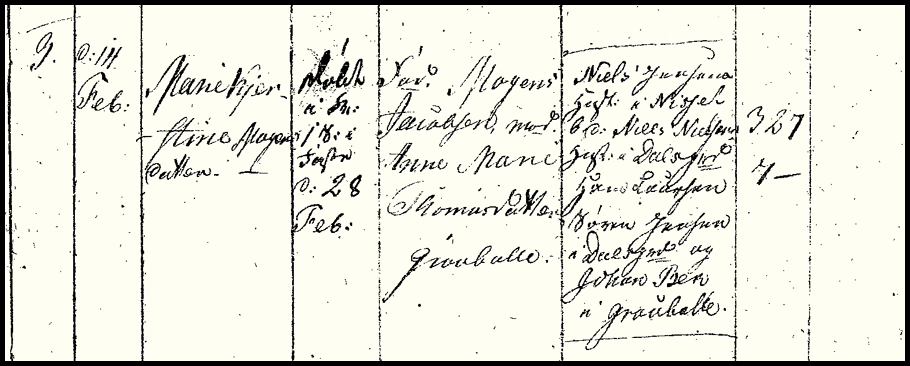 3.
d: 14
Feb:
Marie Kjer-
stine Mogens
datter.
døbt
i
i
d: 28
Feb:
Far. Mogens
Jacobsen, mod.
Anne Marie
Thomasdatter
Grauballe.
Niels Jensens
Hust: i
b d: Niels Nielsens
Hust: i Dalsgrd
Hans Laursen
Søren Jensen
i Dalsgrd og
Johan Bek
i Grauballe.
327
7 —